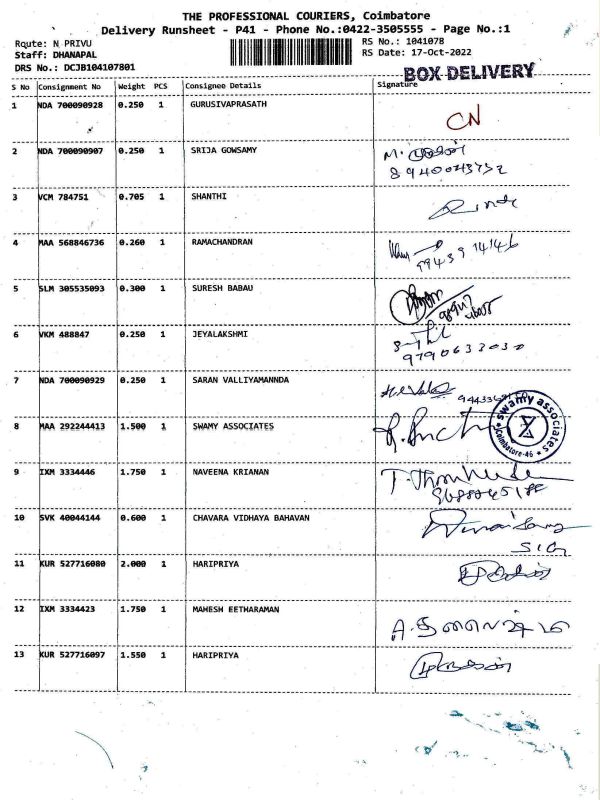 THE PROFESSIONAL COURIERS, Coimbatore
Delivery Runsheet - P41 - Phone No.:0422-3505555 - Page No.:1
Rqute: N PRIVU
RS No.: 1041078
Staff: DHANAPAL
RS Date: 17-Oct-2022
DRS No.: DCJB104107801
BOX DELIVERY
S No Consignment No Weight PCS Consignee Details Signature
1 NDA 700090928 0.250 1 GURUSIVAPRASATH
CN
2 NDA 700090907 0.250 1 SRIJA GOWSAMY
8940043752
3 VCM 784751 0.705 1 SHANTHI
4 MAA 568846736 0.260 1 RAMACHANDRAN
5 SLM 305535093 0.300 1 SURESH BABAU
6 VKM 488847 0.250 1 JEYALAKSHMI
9790633030
7 NDA 700090929 0.250 1 SARAN VALLIYAMANNDA
8 MAA 292244413 1.500 1 SWAMY ASSOCIATES
swamy associates
Coimbatore-46
9 IXM 3334446 1.750 1 NAVEENA KRIANAN
10 SVK 40044144 0.600 1 CHAVARA VIDHAYA BAHAVAN
11 KUR 527716080 2.000 1 HARIPRIYA
12 IXM 3334423 1.750 1 MAHESH EETHARAMAN
13 KUR 527716097 1.550 1 HARIPRIYA